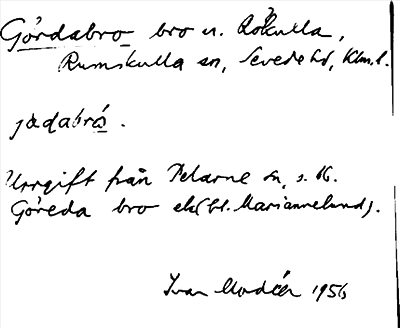 Górdabro bro u. Rökulla,
Rumskulla sn, Sevede hd, Klm.l.
jǝdabró.
Uppgift från Pelarne sn, s. 16.
Göreda bro (bl. Mariannelund).
Ivar Modéer 1956